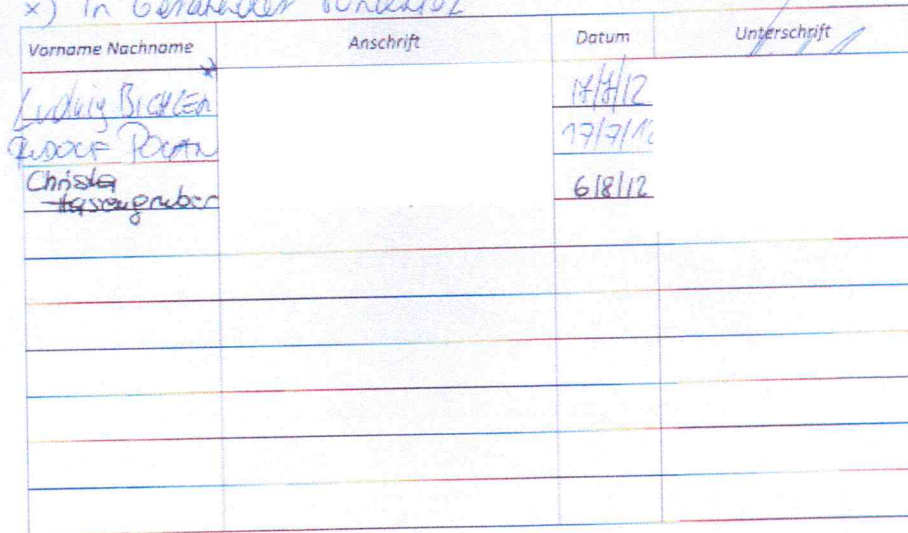 x) In
Vorname Nachname Anschrift Datum Unterschrift
Ludwig BICHLER 17/7/12
RUDOLF 17/7/12
Christa 6/8/12
Hasengruber